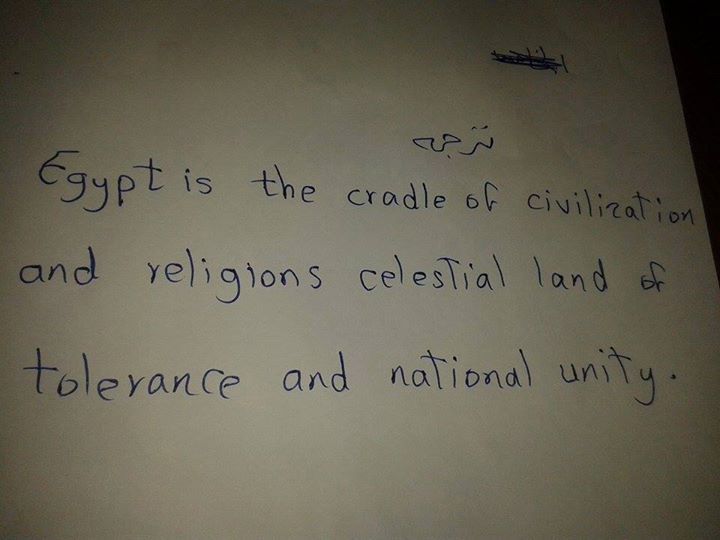 ترجمه
Egypt is the cradle of civilization
and religions celestial land of
tolerance and national unity.